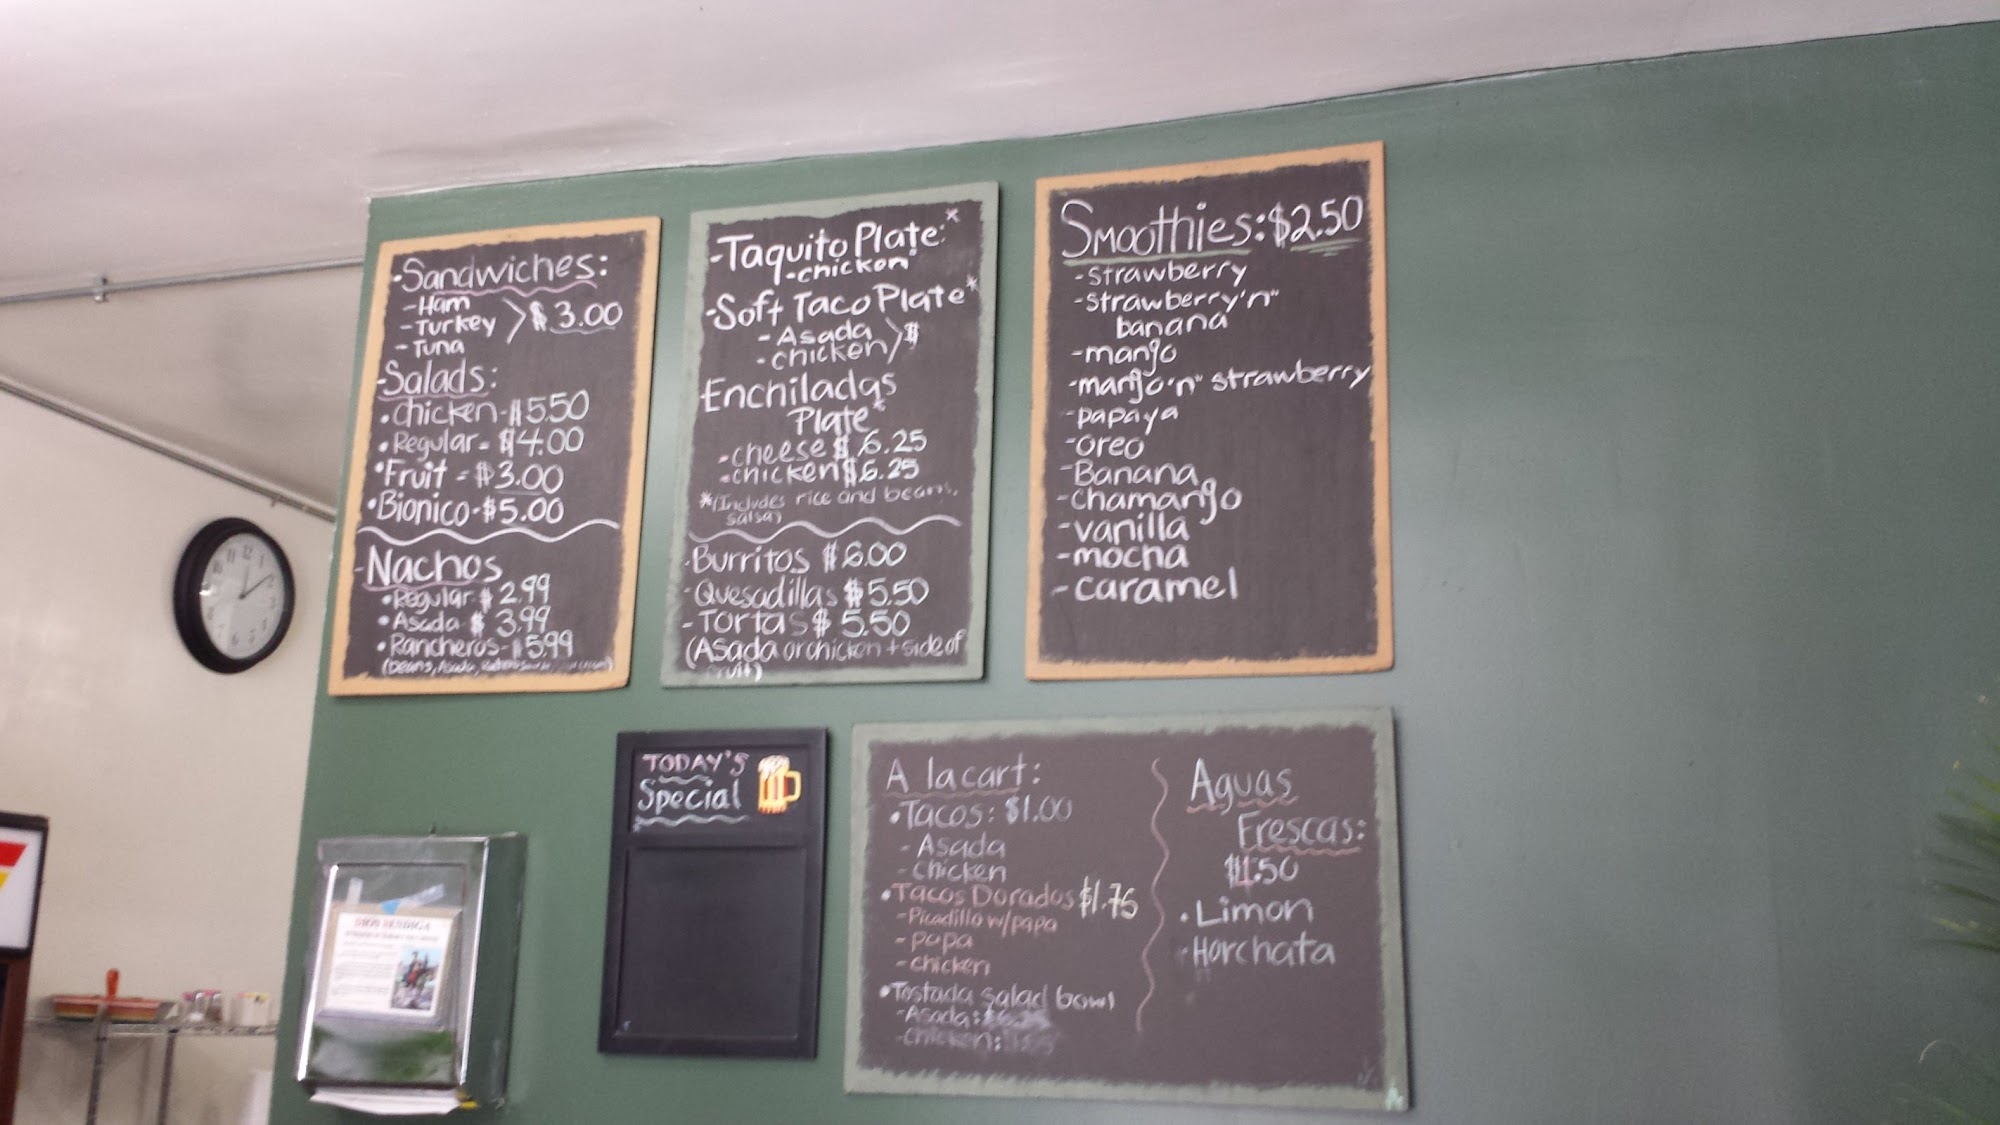 - Sandwiches:
- Ham
- Turkey > $ 3.00
- Tuna
- Salads:
• chicken - $5.50
• Regular - $4.00
• Fruit - $3.00
• Bionico - $5.00
- Nachos
• Regular $ 2.99
• Asada $ 3.99
• Rancheros - $5.99
(beans, Asada,
- Taquito Plate: *
- chicken
- Soft Taco Plate *
- Asada > $
- chicken
- Enchiladas
Plate *
- cheese $ 6.25
- chicken $6.25
*(Includes rice and beans,
salsa)
- Burritos $6.00
- Quesadillas $5.50
- Tortas $ 5.50
(Asada or chicken + side of
fruit)
Smoothies: $2.50
- strawberry
- strawberry "n"
banana
- mango
- mango "n" strawberry
- papaya
- oreo
- Banana
- chamango
- vanilla
- mocha
- caramel
TODAY'S
Special
A lacart:
• Tacos: $1.00
- Asada
- chicken
• Tacos Dorados $1.75
- Picadillo w/papa
- papa
- chicken
• Tostada salad bowl
- Asada:
- chicken:
Aguas
Frescas:
$1.50
• Limon
- Horchata